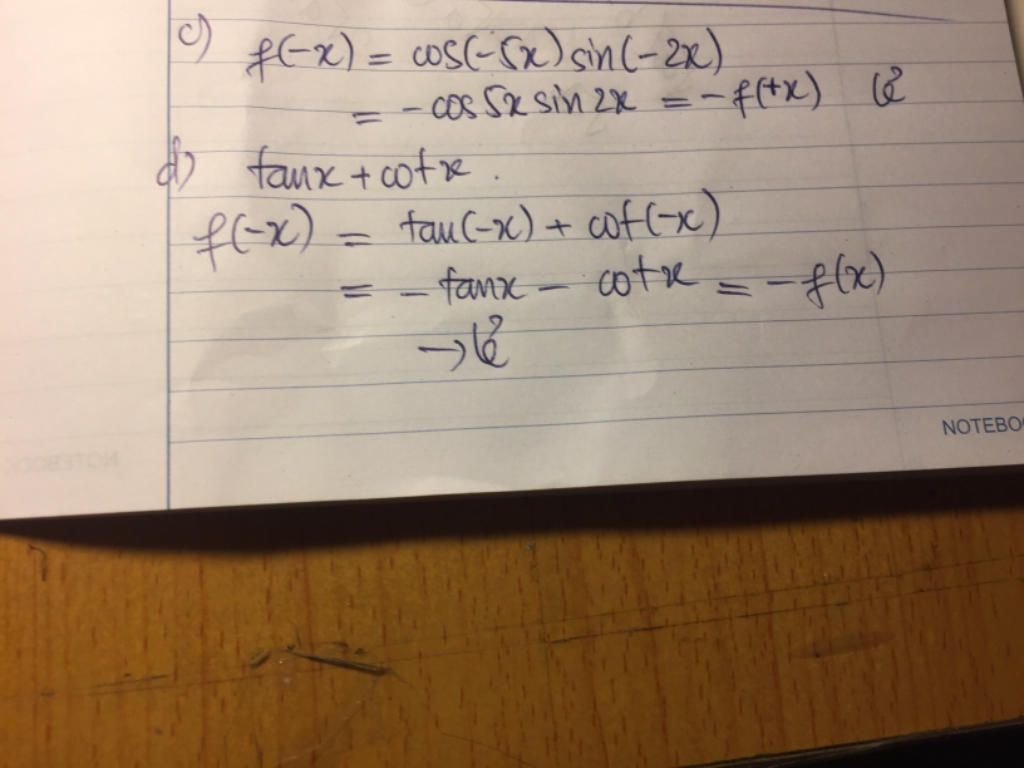 c) f(-x) = cos(-5x) sin(-2x)
= -cos5x sin2x = -f(+x) lẻ
d) tanx + cotx.
f(-x) = tan(-x) + cot(-x)
= -tanx - cotx = -f(x)
→ lẻ
NOTEBO